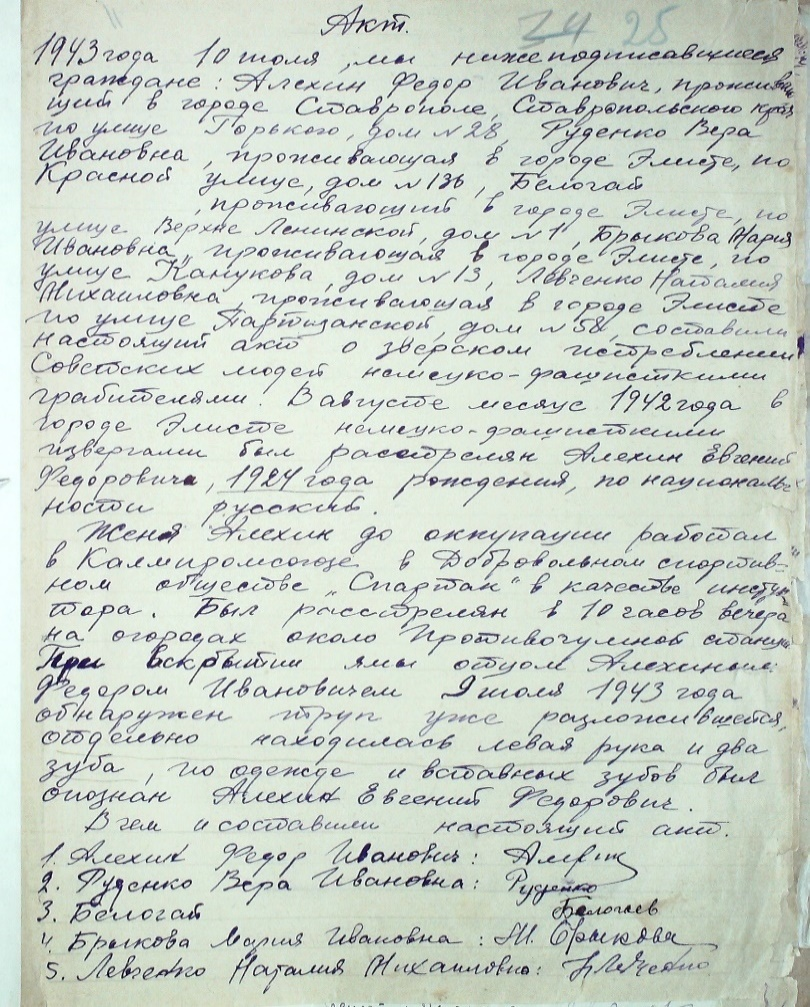 Акт.
24 25
1943 года 10 июля, мы нижеподписавшиеся
граждане: Алехин Федор Иванович, проживаю-
щий в городе Ставрополе, Ставропольского края
по улице Горького, дом №28, Руденко Вера
Ивановна, проживающая в городе Элисте, по
Красной улице, дом №136, Белогай
, проживающий в городе Элисте, по
улице Верхне Ленинской, дом №1, Брыкова Мария
Ивановна, проживающая в городе Элисте, по
улице Канукова, дом №13, Левченко Наталия
Михаиловна, проживающая в городе Элисте
по улице Партизанской, дом №58, составили
настоящий акт о зверском истреблении
Советских людей немецко-фашисткими
грабителями. В августе месяце 1942 года в
городе Элисте немецко-фашисткими
извергами был расстрелян Алехин Евгений
Федоровича, 1924 года рождения, по националь-
ности русский.
Женя Алехин до оккупации работал
в Калмпромсоюзе в Добровольном спортив-
ном обществе „Спартак" в качестве инструк
тора. Был расстрелян в 10 часов вечера
на огородах около Противочумной станции
При вскрытии ямы отцом Алехиным
Федором Ивановичем 9 июля 1943 года
обнаружен труп уже разложившегося,
отдельно находилась левая рука и два
зуба, по одежде и вставных зубов был
опознан Алехин Евгений Федорович.
В чем и составили настоящий акт.
1. Алехин Федор Иванович:
2. Руденко Вера Ивановна: Руденко
3. Белогай Белогаев
4. Брыкова Мария Ивановна: М. Брыкова
5. Левченко Наталия Михаиловна: Н Левченко